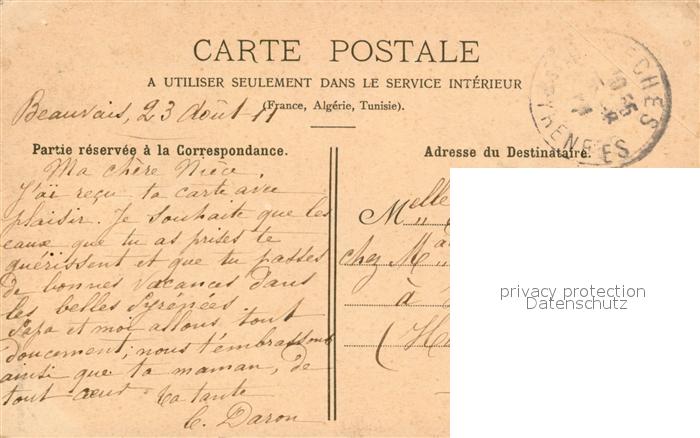 CARTE POSTALE
A UTILISER SEULEMENT DANS LE SERVICE INTÉRIEUR
(France, Algérie, Tunisie).
Beauvais, 23 Août 11
Partie réservée à la Correspondance.
Ma chère Nièce,
J'ai reçu ta carte avec
plaisir. Je souhaite que les
eaux que tu as prises te
guérissent et que tu passes
de bonnes vacances dans
les belles Pyrénées
Papa et moi allons tout
doucement, nous t'embrassons
ainsi que ta maman, de
tout cœur Ta tante
C. Daron
ECHES
10 55
YRENEES
Adresse du Destinataire.
Melle
chez M
à
(H
privacy protection
Datenschutz